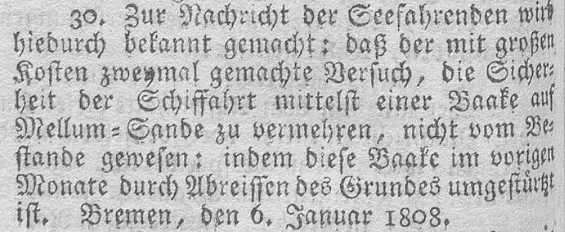 30. Zur Nachricht der Seefahrenden wird
hiedurch bekannt gemacht: daß der mit großen
Kosten zweymal gemachte Versuch, die Sicher-
heit der Schiffahrt mittelst einer Baake auf
Mellum-Sande zu vermehren, nicht vom Be-
stande gewesen: indem diese Baake im vorigen
Monate durch Abreissen des Grundes umgestürtzt
ist. Bremen, den 6. Januar 1808.